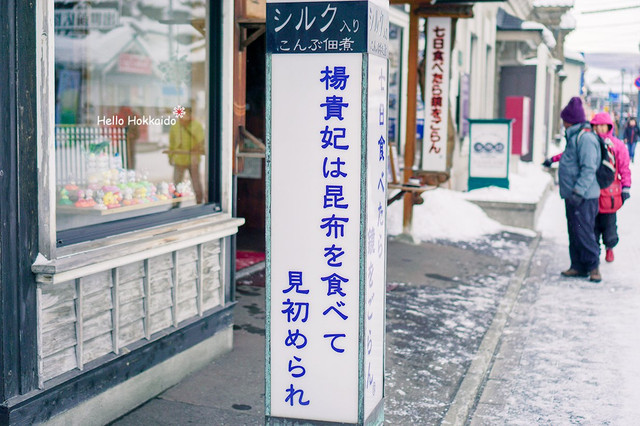 シルク入り
こんぶ佃煮
楊貴妃は昆布を食べて
見初められ
七日食べたら鏡をごらん。
七日食べたら鏡をごらん
Hello Hokkaido